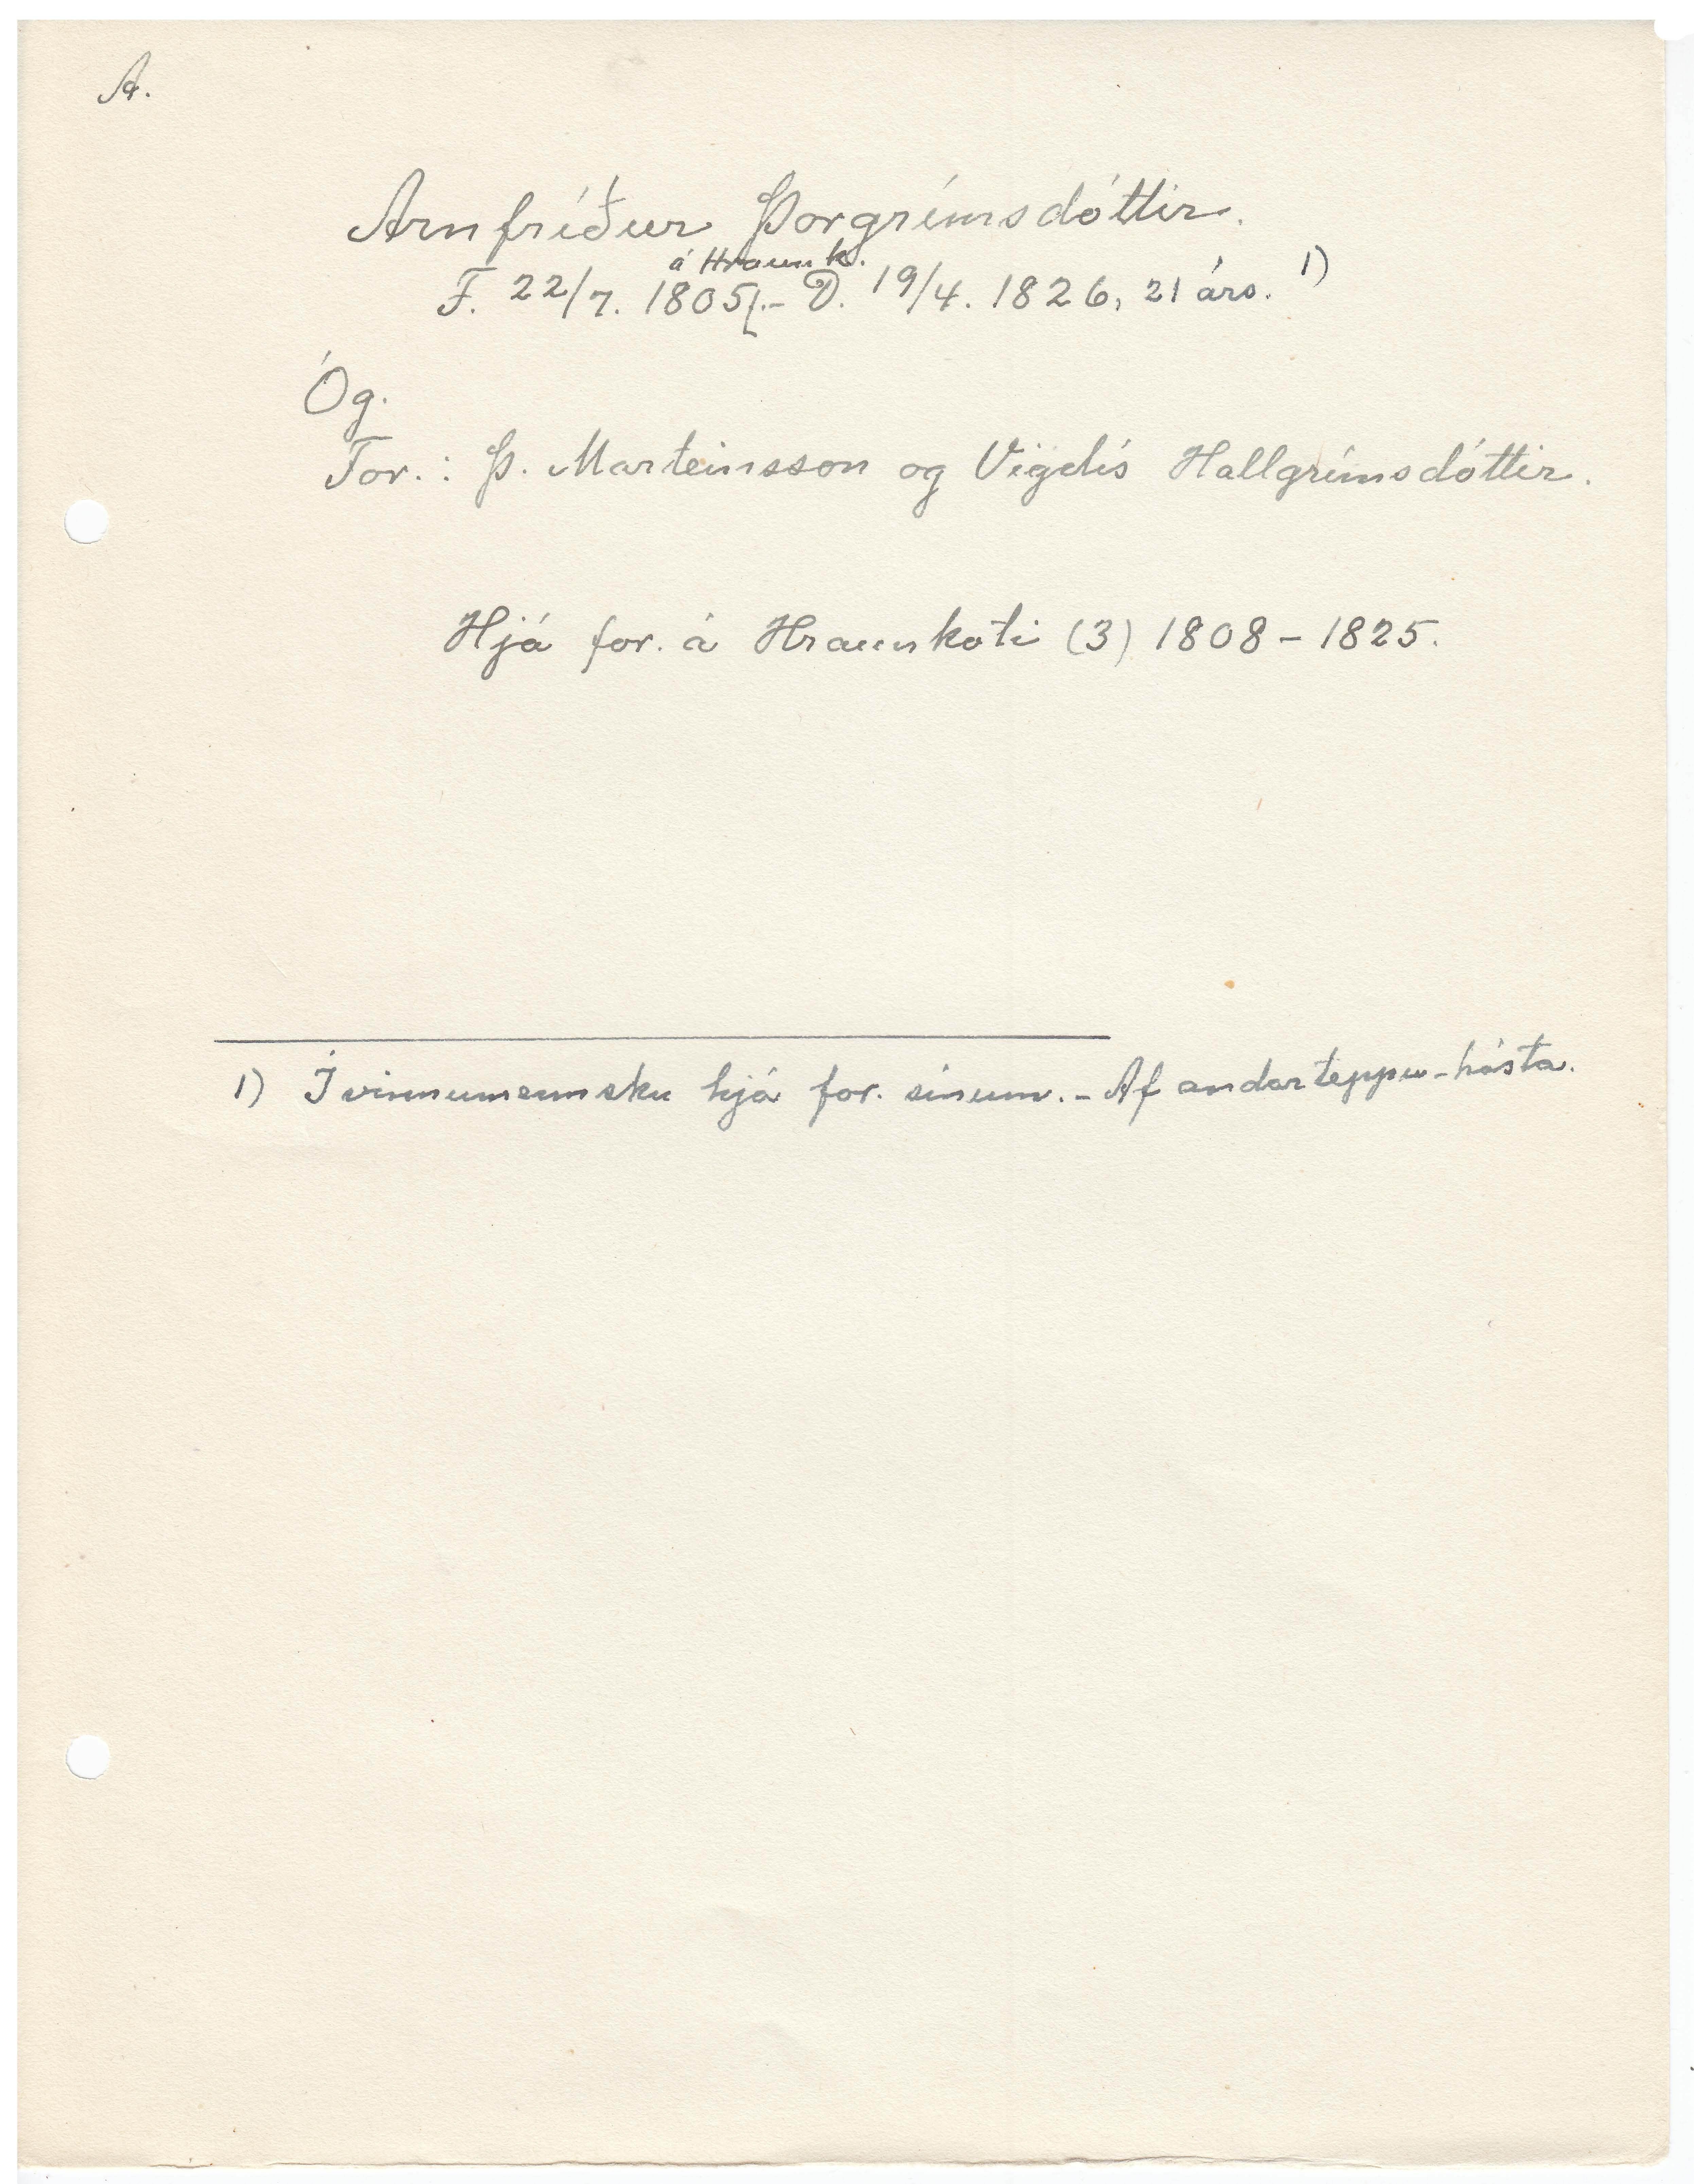 A.
Arnfríður Þorgrímsdóttir.
á Hraunk.
F. 22/7. 1805.- D. 19/4. 1826, 21 árs. 1)
Óg.
For.: Þ. Marteinsson og Vigdís Hallgrímsdóttir.
Hjá for. á Hraunkoti (3) 1808-1825.
1) Í vinnumennsku hjá for. sínum. - Af andarteppu-hósta.